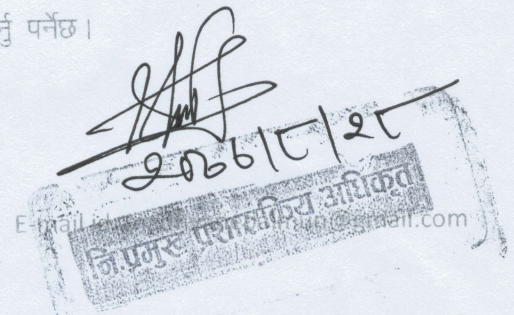 र्नु पर्नेछ।
२०७७।८।२८
E-mail @gmail.com
नि.प्रमुख प्रशासकिय अधिकृत